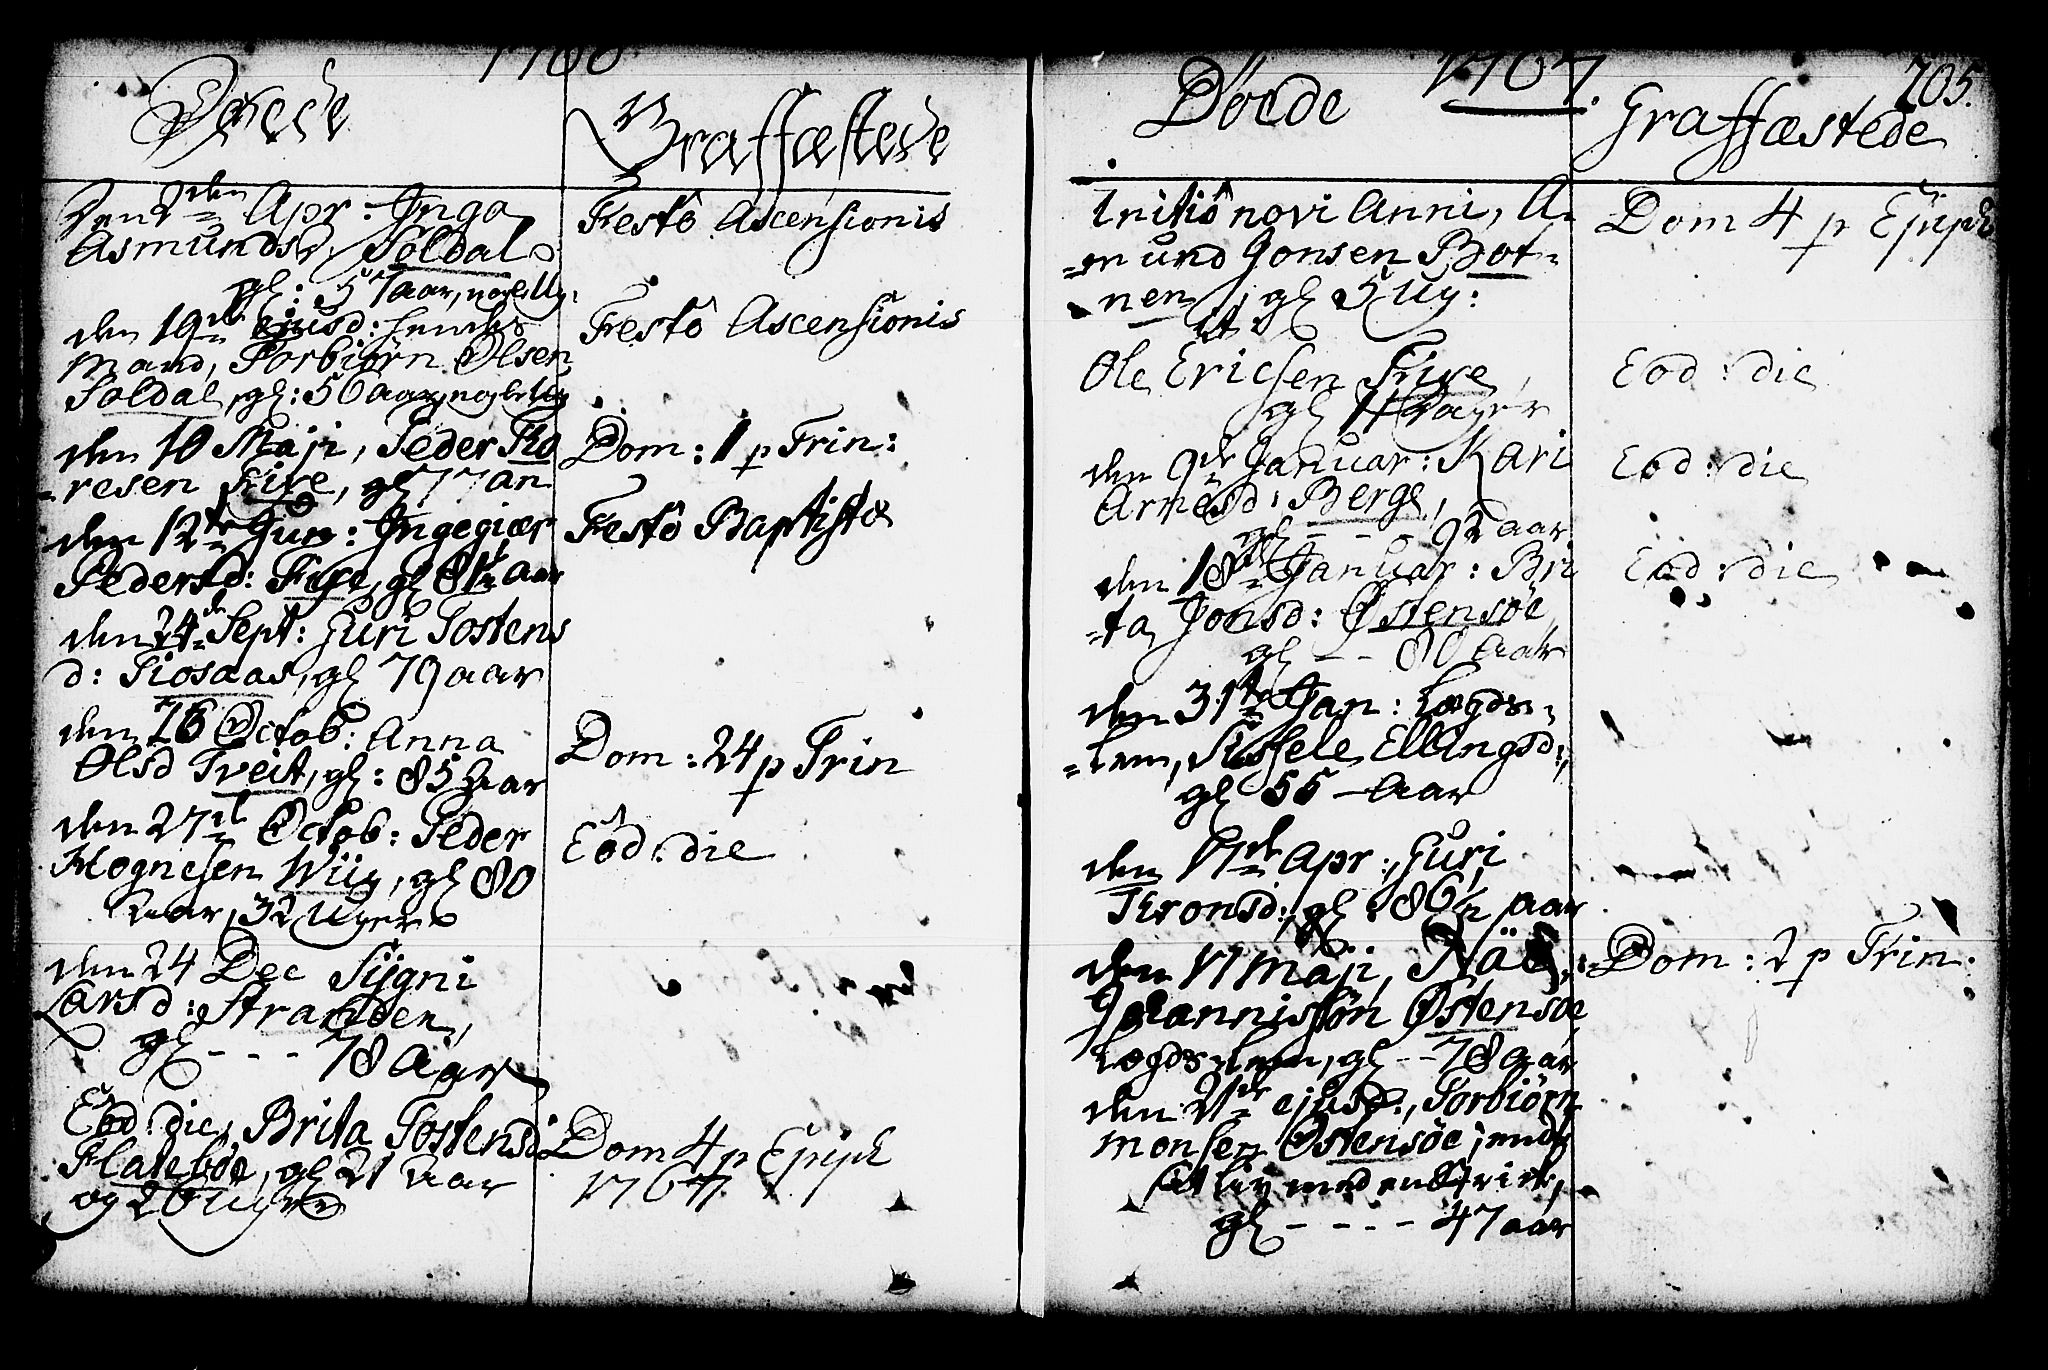 1766.
Döede
Graffæstede
Den 2den Apr: Inga
Asmundsd: Soldal
gl: 57 aar, nogle Ug:
den 19de ejusd: hendes
Mand, Torbiörn Olsen
Soldal, gl: 56 aar, nogle Ug
den 10 Maji, Peder To
resen Fixe, gl 77 aar
den 12te Jun: Ingegiær
Pedersd: Fixe, gl 81½ aar
den 24de Sept: Guri Tostens
d: Tiosaas, gl 79 aar
den 26 Octob: Anna
Olsd Tveit, gl: 85 aar
den 27de Octob: Peder
Mognesen Wiig, gl 80
aar, 32 Uger
den 24 Dec Sygni
Larsd: Stranden,
gl - - - 78 aar
Eod: die, Brita Tostensd:
Flatebøe, gl 21 aar
og 26 Uger
Festô Ascensionis
Festô Ascensionis
Dom: 1 p Trin:
Festô Baptistæ
Dom: 24 p Trin
Eod: die
Dom 4 p Epiph
1767
1767.
205.
Döede
Graffæstede
Initiô novi Anni, A-
=mund Jonsen Bot-
=nen, gl 5 Ug:
Ole Ericsen Fixe,
gl 11 Dager
den 9de Januar: Kari
Arnesd: Berge,
gl - - - 92 aar
den 18de Januar: Bri
=ta Jonsd: Østensøe
gl - - 80 aar
den 31te Jan: Lægds-
=lem, Sissele Ellingsd:,
gl 55 aar
den 17de Apr:, Guri
Tronsd:, gl: 86½ aar
den 17 Maji,
Johannissøn Østensøe
Lægdslem, gl - - 78 aar
den 21de ejusd:, Torbiörn
Monsen Østensøe; endte
sit Liv med en Strick,
gl - - - - 47 aar
Dom 4 p Epiph
Eod: die
Eod: die
Eod: die
Dom: 2 p Trin: